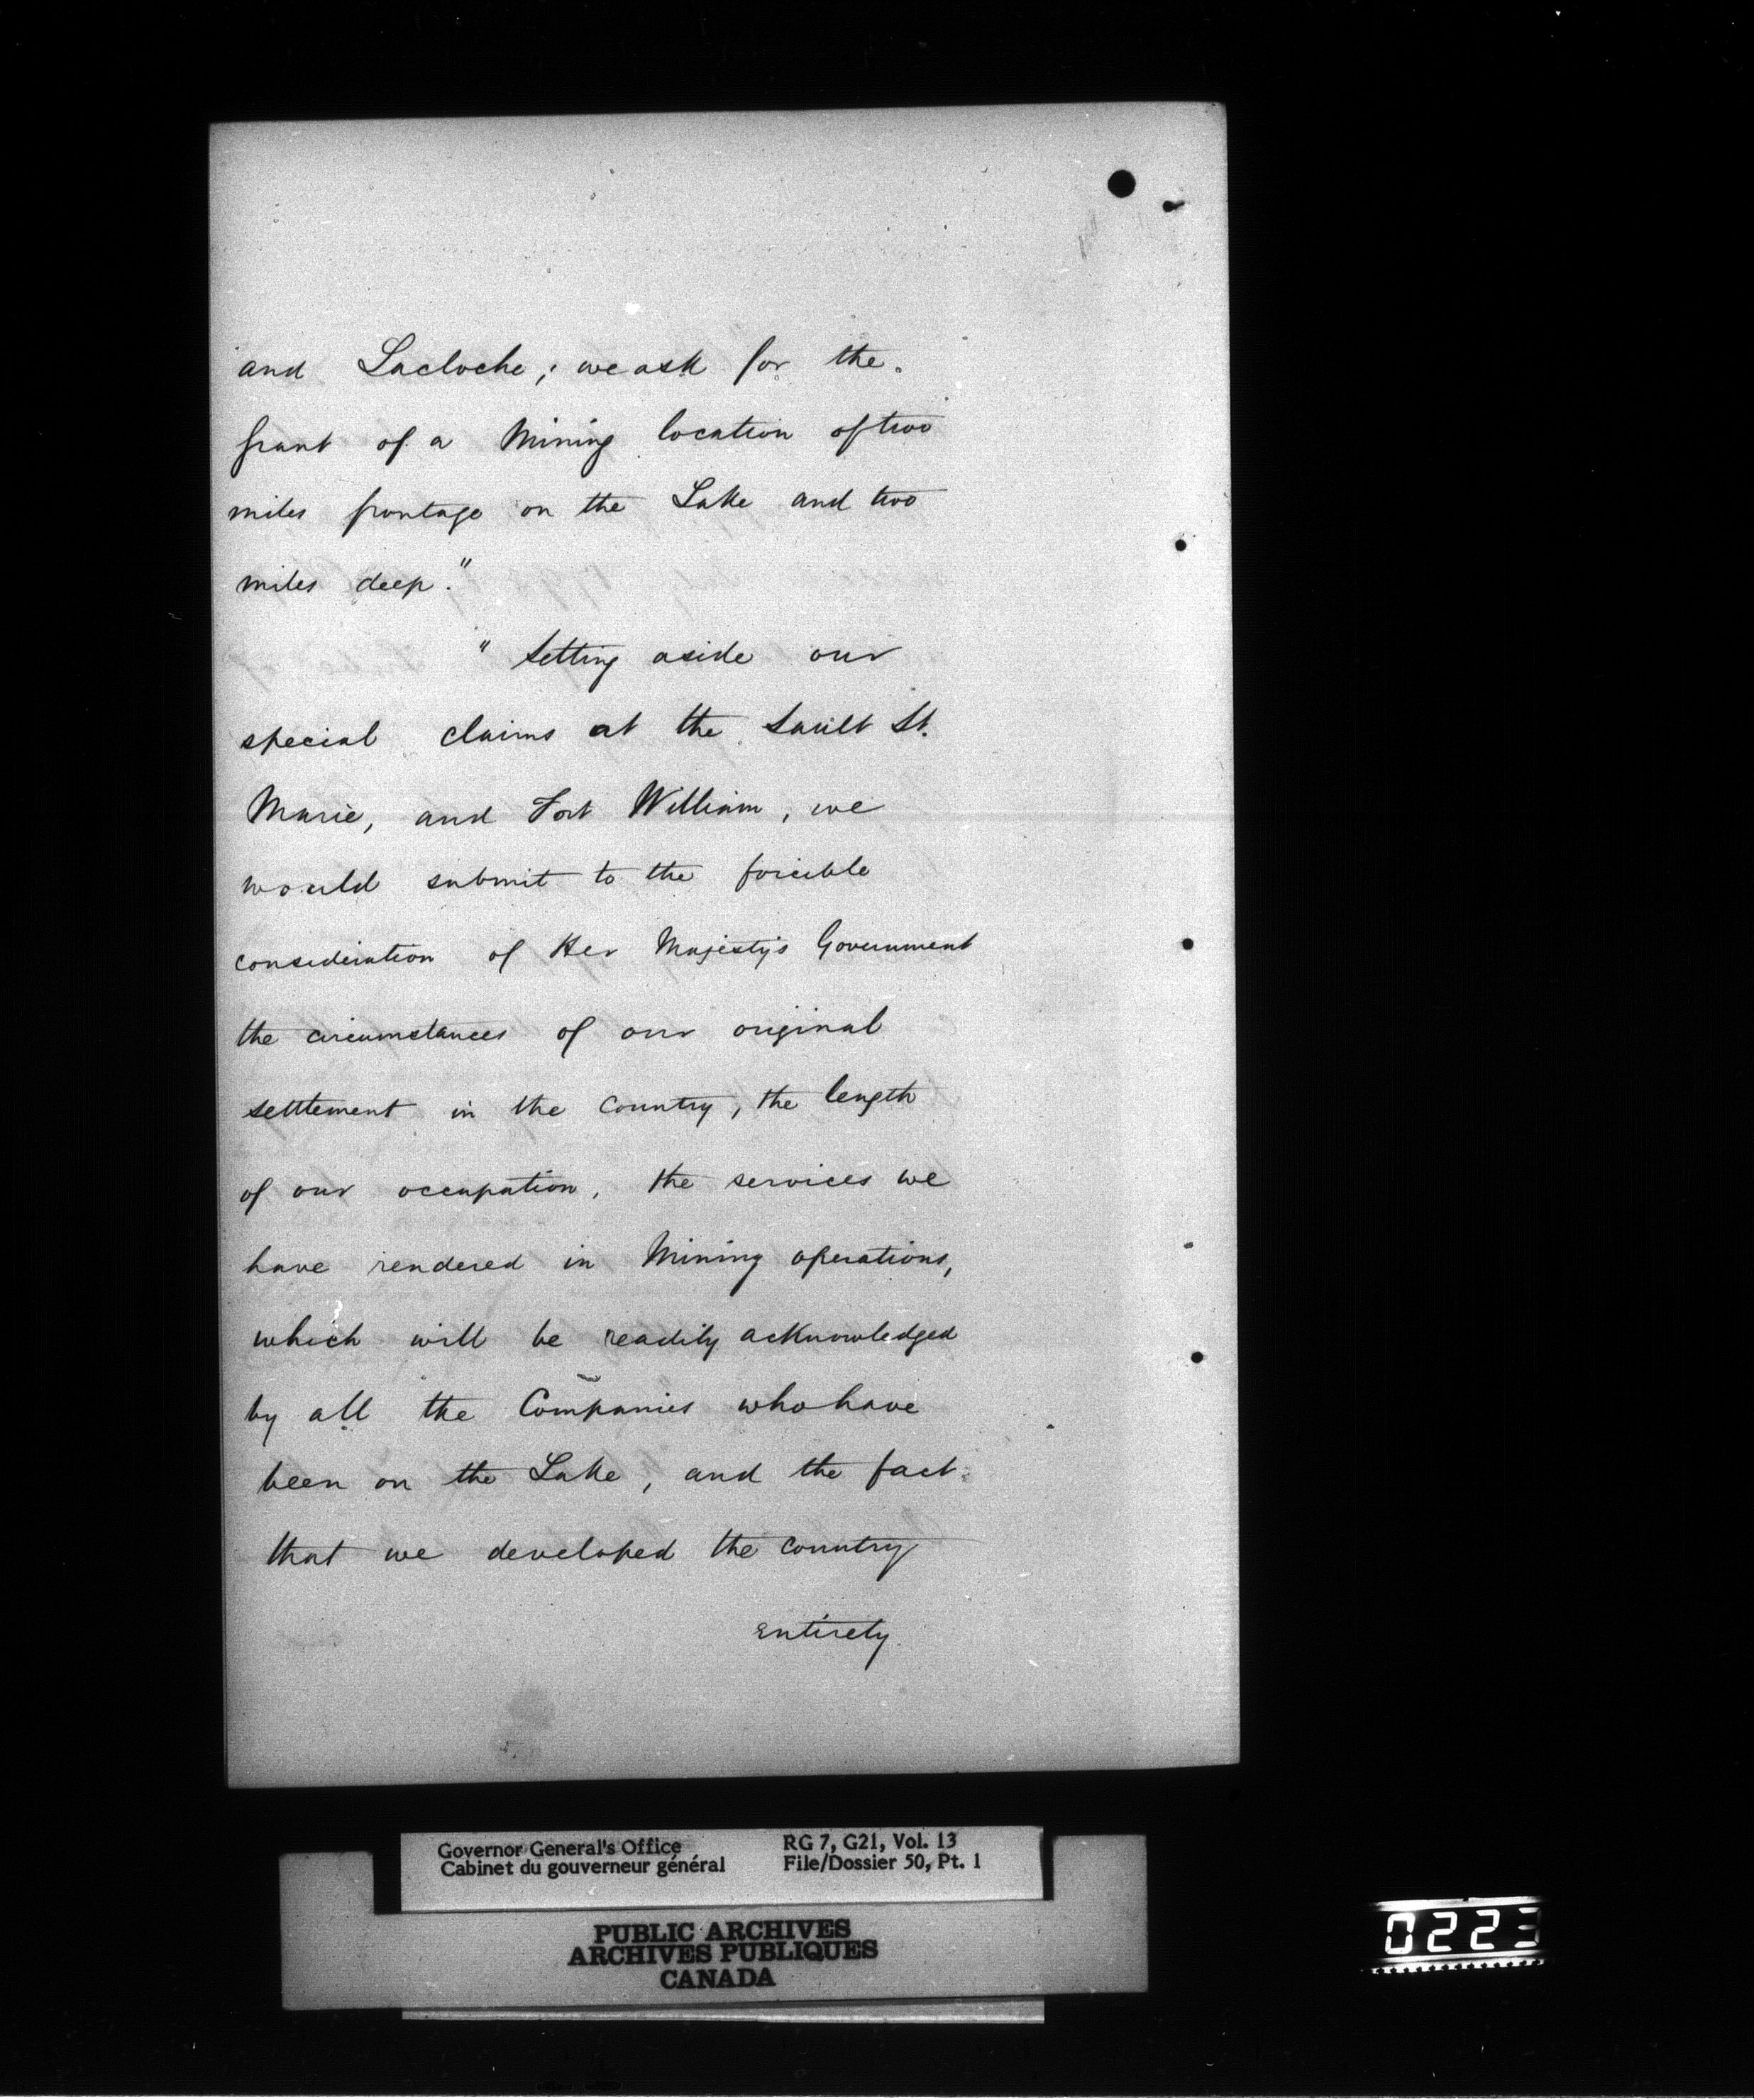 and Lacloche; we ask for the
grant of a Mining location of two
miles frontage on the Lake and two
miles deep."
" Setting aside our
special claims at the Sault St.
Marie, and Fort William, we
would submit to the forcible
consideration of Her Majesty's Government
the circumstances of our original
settlement in the Country, the length
of our occupation, the services we
have rendered in Mining operations,
which will be readily acknowledged
by all the Companies who have
been on the Lake, and the fact
that we developed the country
entirely
Governor General's Office
Cabinet du gouverneur général
RG 7, G21, Vol. 13
File/Dossier 50, Pt. 1
PUBLIC ARCHIVES
ARCHIVES PUBLIQUES
CANADA
0223